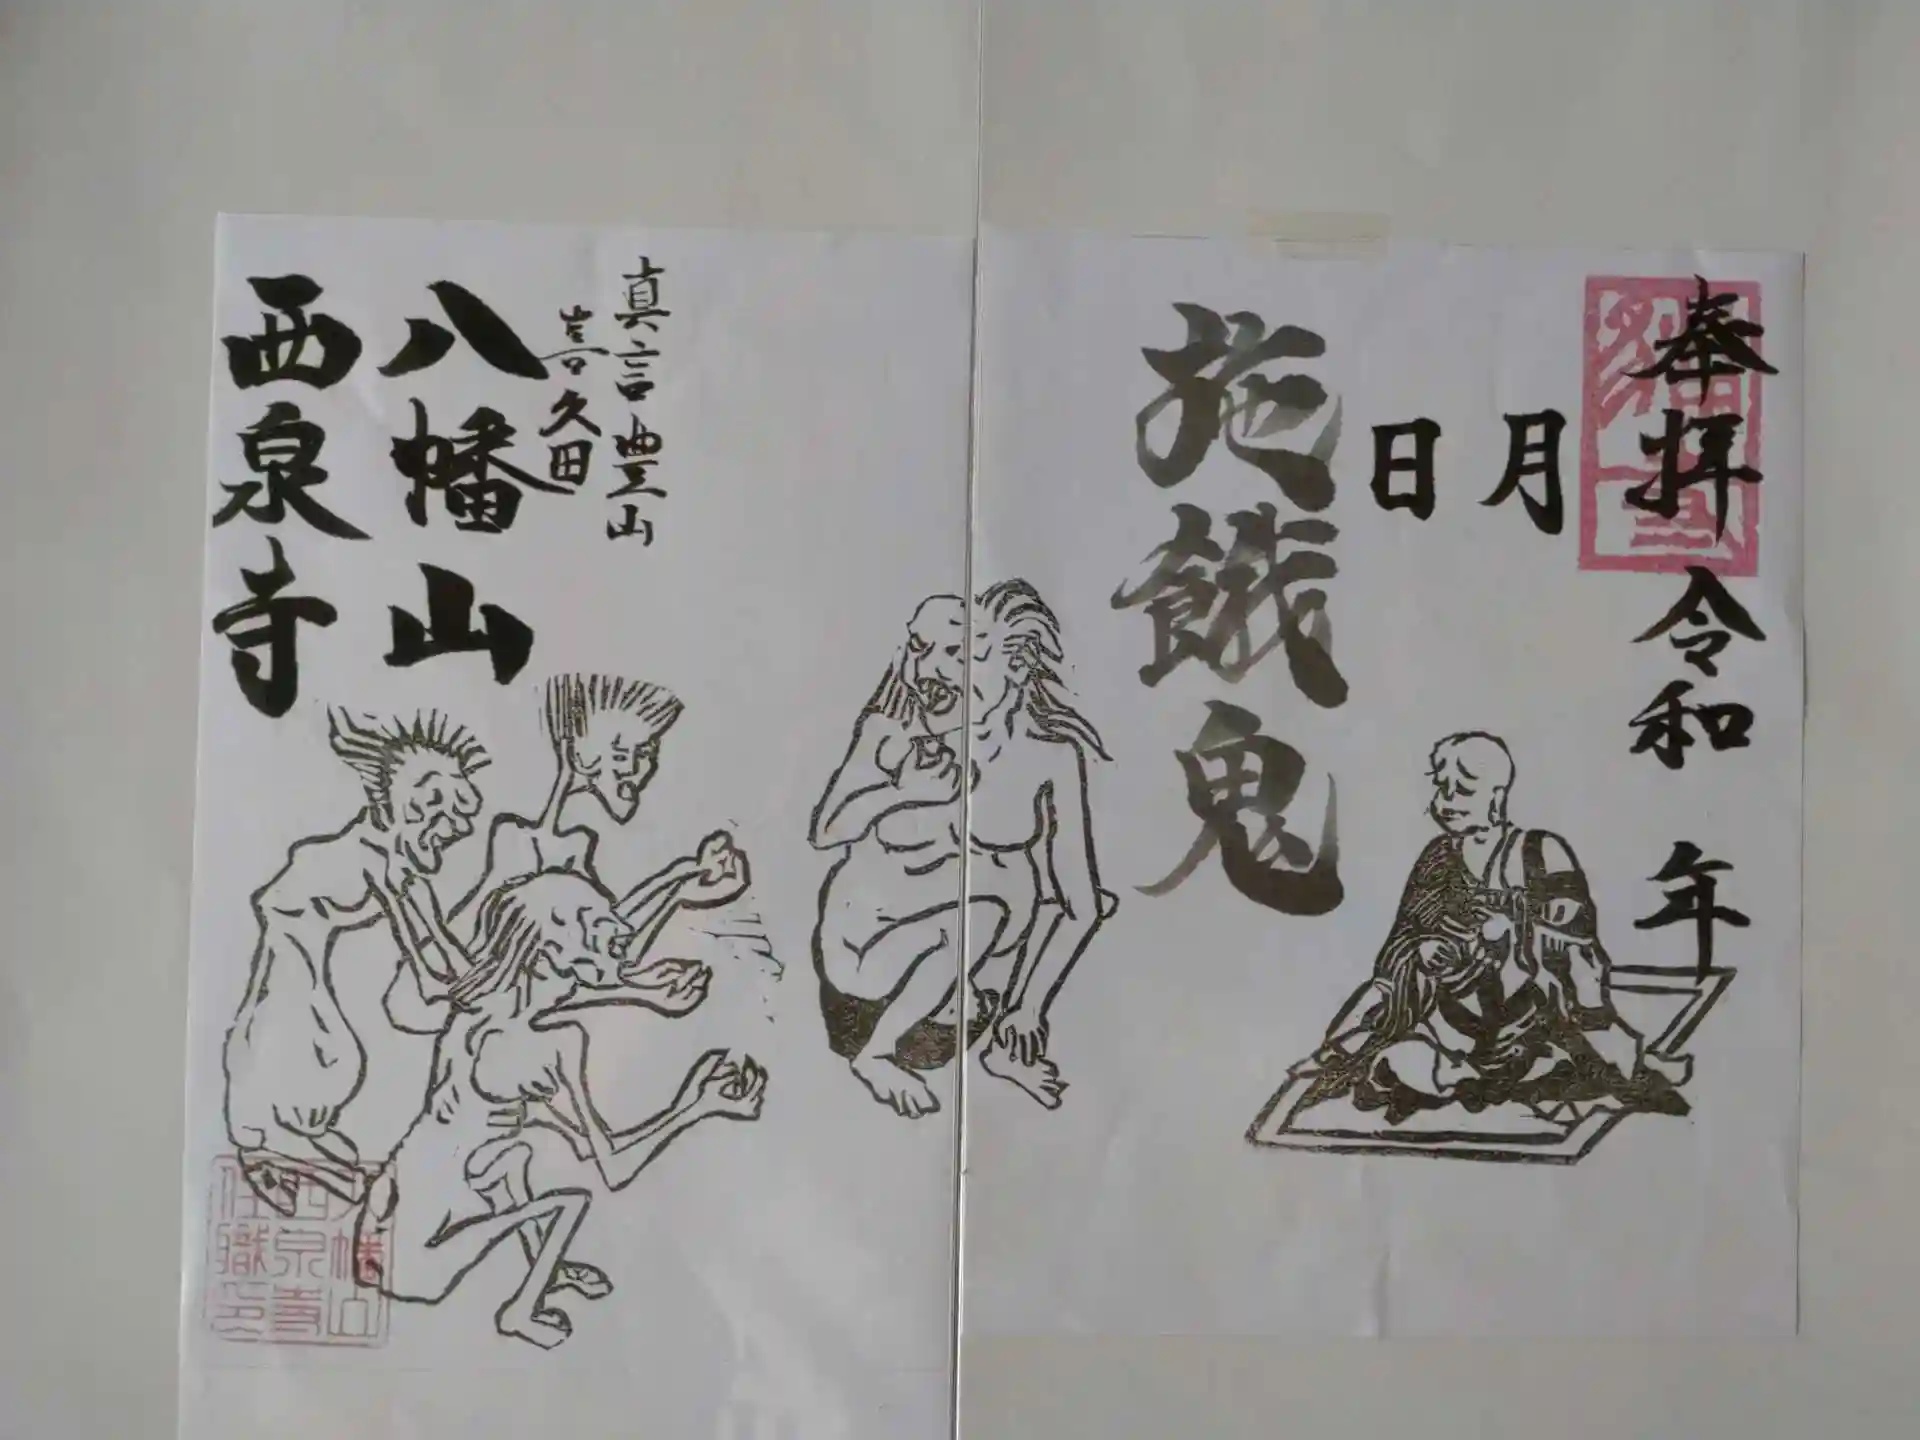 奉拝 令和 年
月
日
施餓鬼
真言豊山
喜久田
八幡山
西泉寺
八幡山
西泉寺
住職印